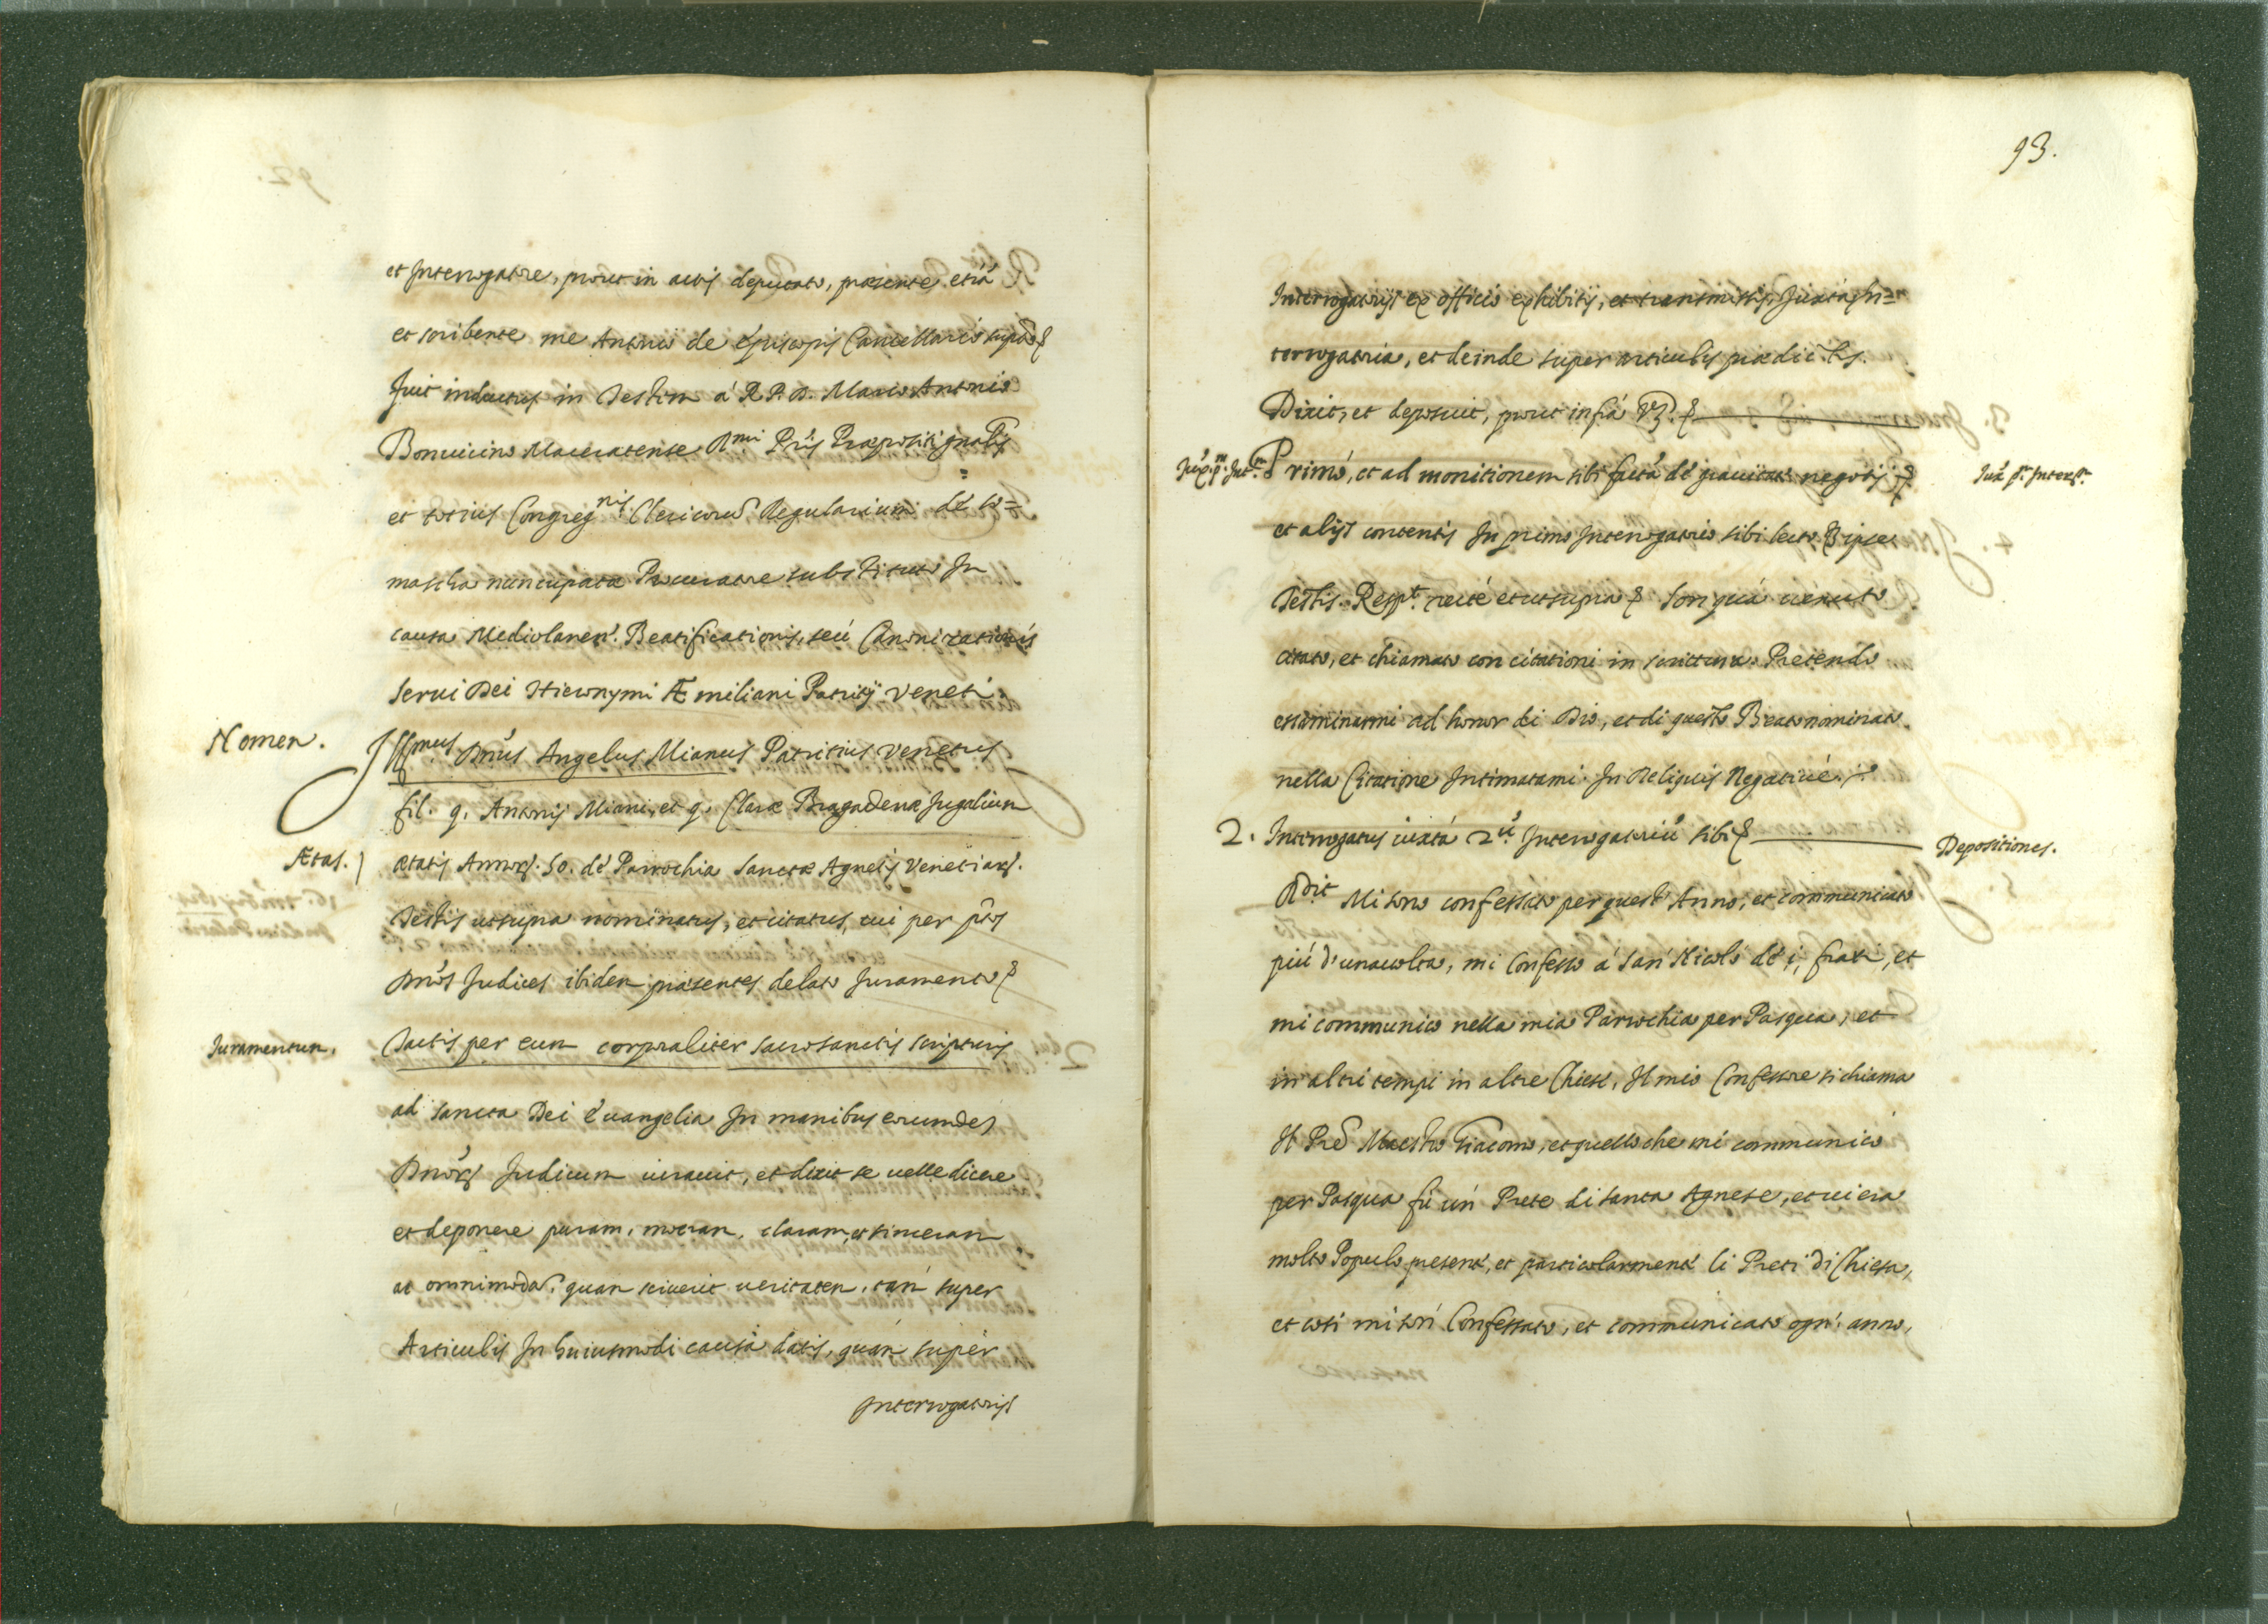 et Interrogatore, prout in actis deputato, praesente etiā
et scribente me Antonio de Episcopis Cancellario supdo
fuit inductus in Testem á R. P. D. Marco Antonio
Bonvicino Maceratense Rmi Pris Praepositi gnalis
et totius Congregnis Clericorū Regularium de So=
mascha nuncupatae Procuratore substituto In
causa Mediolanen. Beatificationis, seú Canonizationis
Servi Dei Hieronymi Æmiliani Patritij Veneti.
Nomen.
Illmus Dnus Angelus Mianus Patritius Venetus
fil. q. Antonij Miani, et q. Clarae Bragadenae Jugalium
Ætas.
aetatis Annor. 50. de Parrochia Sanctae Agnetis Venetiar.
Testis ut supra nominatus, et citatus, cui per ptos
Dnos Judices ibidem praesentes delato Juramento
Juramentum.
Tactis per eum corporaliter sacrosanctis scripturis
ad sancta Dei Evangelia In manibus eorumdē
Dnor Judicum iuravit, et dixit se velle dicere
et deponere puram, meram, claram, et sinceram
ac omnimodā, quam sciverit veritatem, tam super
Articulis In huiusmodi causa datis, quam super
Interrogatorijs
93.
Interrogatorijs ex officio exhibitis, et transmissis, Juxta In=
terrogatoria, et deinde super articulis praedictis.
Dixit, et deposuit, prout infrá vz.
Juxa pm Intm.
Primó, et ad monitionem sibi factā de gravitate negotij
Juxa pm Interr.
et alijs contentis In primo Interrogatorio sibi lecto per ipse
Testis. Respt. recte et ut supra Son quá venuto
citato, et chiamato con citationi in scrittura. Pretendo
essaminarmi ad honor di Dio, et di questo Beato nominato
nella Citatione Intimatami. In Reliquis Negativé.
2. Interrogatus iuxtá 2um Interrogatoriū sibi
Depositiones.
Rdit Mi sono confessato per quest' Anno, et communicato
piú d'una volta, mi confesso á San Nicoló de i, frati, et
mi communico nella mia Parochia per Pasqua, et
in altri tempi in altre Chiese, Il mio Confessore si chiama
Il Pre Maestro Giacomo, et quello che mi communicó
per Pasqua fú un Prete di Santa Agnese, et vi era
molto Populo presente, et particolarmente li Preti di Chiesa,
et cosi mi son Confessato, et communicato ogn' anno,